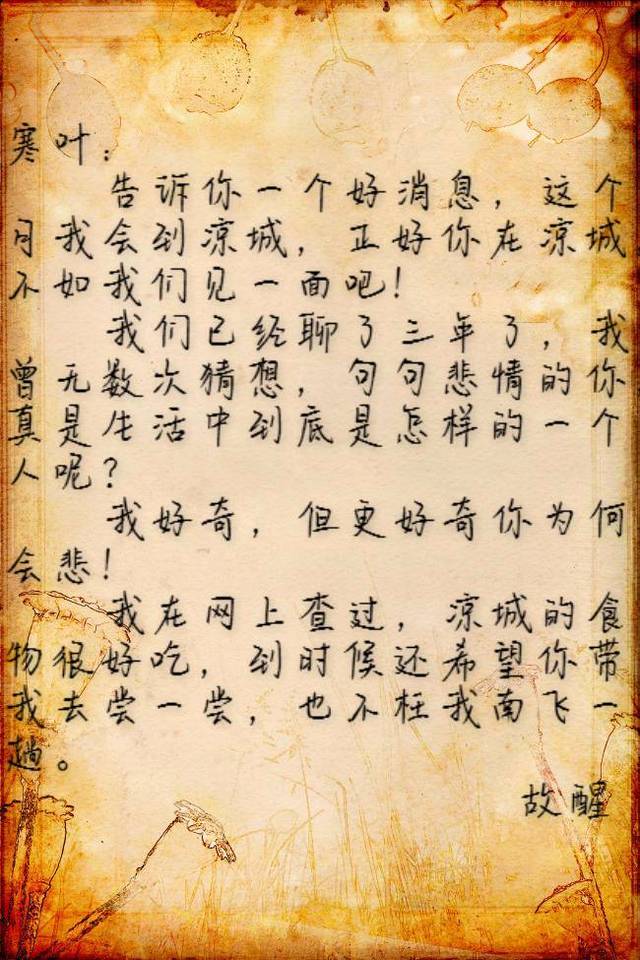 寒叶：
告诉你一个好消息，这个
月我会到凉城，正好你在凉城
不如我们见一面吧！
我们已经聊了三年了，我
曾无数次猜想，句句悲情的你
真是生活中到底是怎样的一个
人呢？
我好奇，但更好奇你为何
会悲！
我在网上查过，凉城的食
物很好吃，到时候还希望你带
我去尝一尝，也不枉我南飞一
趟。
故醒